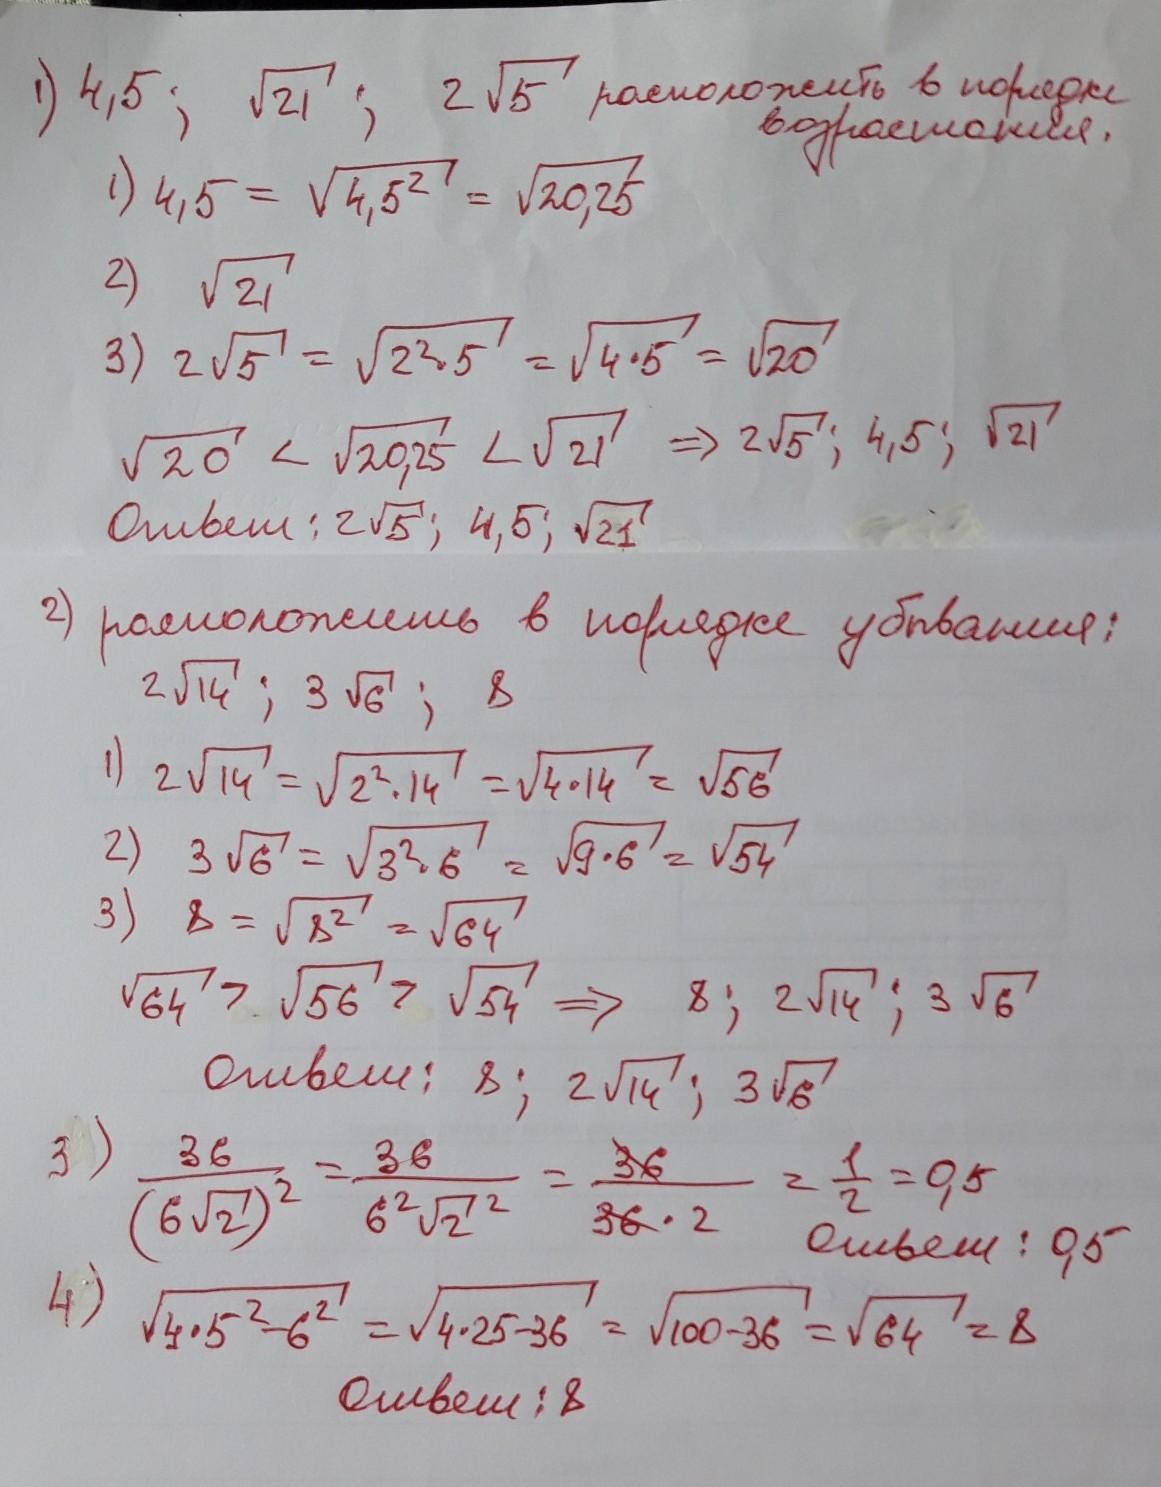 1) 4,5; √21; 2√5 расположить в порядке
возрастания.
1) 4,5 = √4,5² = √20,25
2) √21
3) 2√5 = √2²·5 = √4·5 = √20
√20 < √20,25 < √21 ⇒ 2√5; 4,5; √21
Ответ: 2√5; 4,5; √21
2) расположить в порядке убывания:
2√14; 3√6; 8
1) 2√14 = √2²·14 = √4·14 = √56
2) 3√6 = √3²·6 = √9·6 = √54
3) 8 = √8² = √64
√64 > √56 > √54 ⇒ 8; 2√14; 3√6
Ответ: 8; 2√14; 3√6
3) 36/(6√2)² = 36/6²√2² = 36/36·2 = 1/2 = 0,5
Ответ: 0,5
4) √4·5²-6² = √4·25-36 = √100-36 = √64 = 8
Ответ: 8